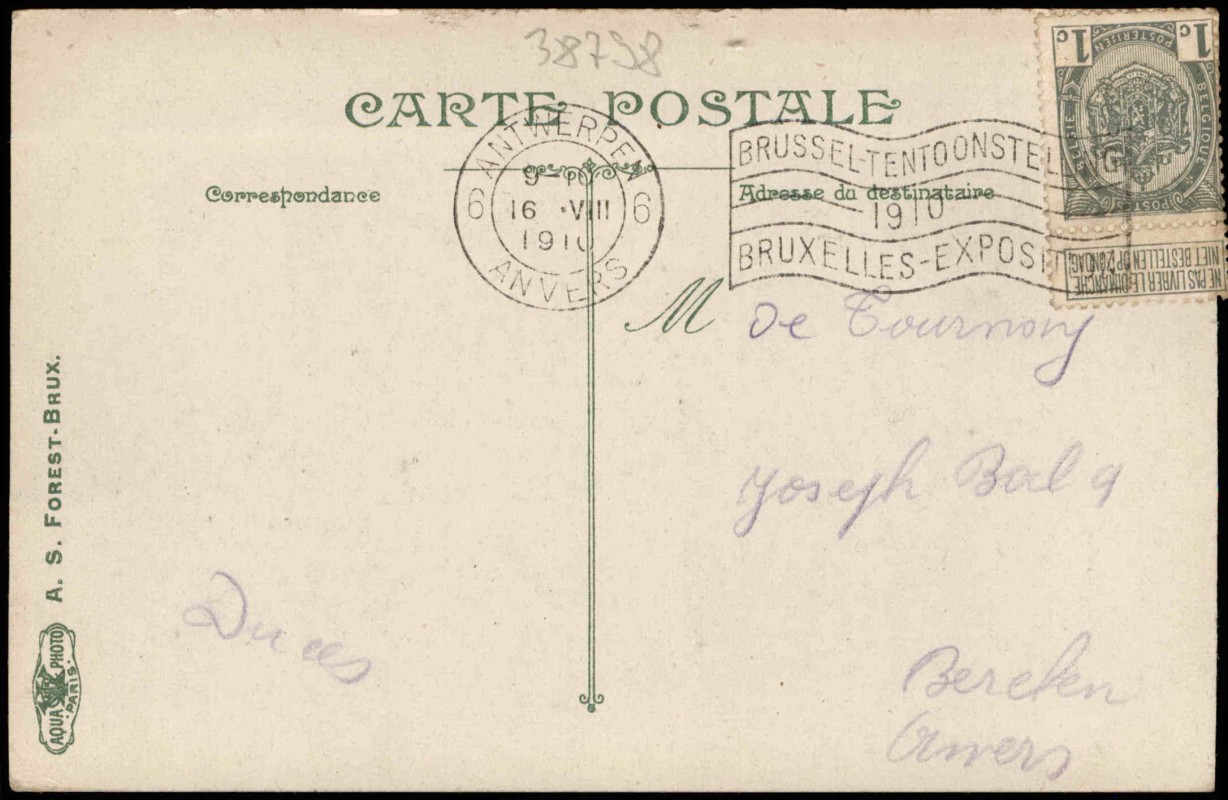 38798
CARTE POSTALE
Correspondance
Adresse du destinataire
ANTWERPEN
9-10
6 16 VIII 6
1910
ANVERS
BRUSSEL-TENTOONSTELLING
1910
BRUXELLES-EXPOSIT
1c 1c
POSTERIJEN
BELGIE BELGIQUE
POSTES
NE PAS LIVRER LE DIMANCHE
NIET BESTELLEN OP ZONDAG
M de Tournay
Joseph Bal 9
Berchen
Anvers
A. S. FOREST-BRUX.
AQUA PHOTO
PARIS